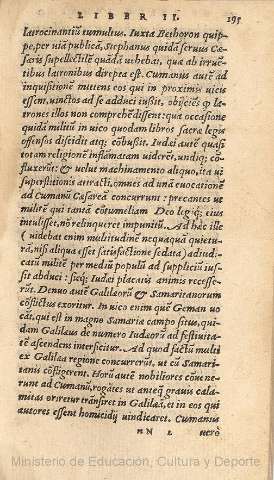 LIBER II. 195
latrocinantiũ tumultus. Iuxta Bethoron quip
pe, per uiã publica, Stephanus quidã seruus Cæ
saris supellectilẽ quandã uehebat, qua ab irruẽ
tibus latronibus direpta est. Cumanus autẽ ad
inquisitionẽ mittens eos qui in proximis uicis
essent, uinctos ad se adduci iußit, obijciẽs ꝙ la
trones illos non comprehẽdissent: qua occasione
quidã militũ in uico quodam libros sacræ legis
offensos discidit atq; cõbußit. Iudæi autẽ quasi
totam religionẽ inflãmatam uiderẽt, undiq; cõ
fluxerũt: & uelut machinamento aliquo, ita ui
superstitionis attracti, omnes ad unã euocationẽ
ad Cumanũ Cæsareã concurrunt: precantes ut
militẽ qui tantã cõtumeliam Deo legiq; eius
intulisset, nõ relinqueret impunitũ. Ad hæc ille
(uidebat enim multitudinẽ nequaquã quietu-
rã, nisi aliqua esset satisfactione sedata) adiudi-
catũ militẽ per mediũ populi ad suppliciũ ius-
sit abduci: sicq; Iudæi placatis animis recesse-
rũt. Denuo autẽ Galilæorũ & Samaritanorum
cõflictus exoritur. In uico enim quẽ Geman uo
cãt, qui est in magno Samariæ campo situs, qui-
dam Galilæus de numero Iudæorũ ad festiuita-
tẽ ascendens interficitur. Ad quod factũ multi
ex Galilæa regione concurrerũt, ut cũ Samari-
tanis cõfligerent. Horũ autẽ nobiliores cõue ne-
runt ad Cumanũ, rogãtes ut anteq̃ grauis cala-
mitas oriretur trãsiret in Galilæã, et in eos qui
autores essent homicidij uindicaret. Cumanus
NN 2 uero
Ministerio de Educación, Cultura y Deporte